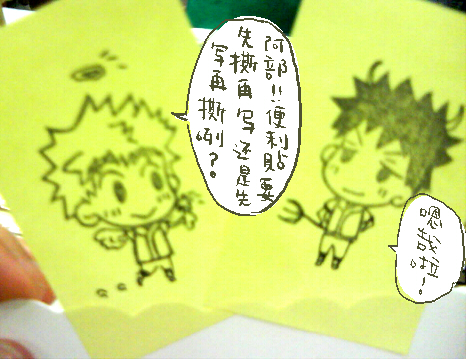 阿部!!便利貼要
先撕再写还是先
写再撕咧?
嗯哉啦!